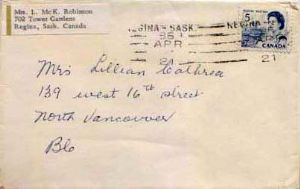 Mrs. L. McK. Robinson
702 Tower Gardens
Regina, Sask. Canada
REGINA - SASK.
APR
21
REGINA
21
5
CANADA
Mrs Lillian Cathrea
139 West 16th Street
North Vancouver
BC